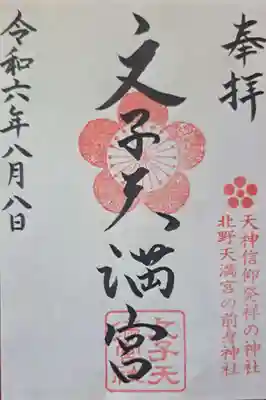 奉拝
天神信仰発祥の神社
北野天満宮の前身神社
文子天満宮
令和六年八月八日